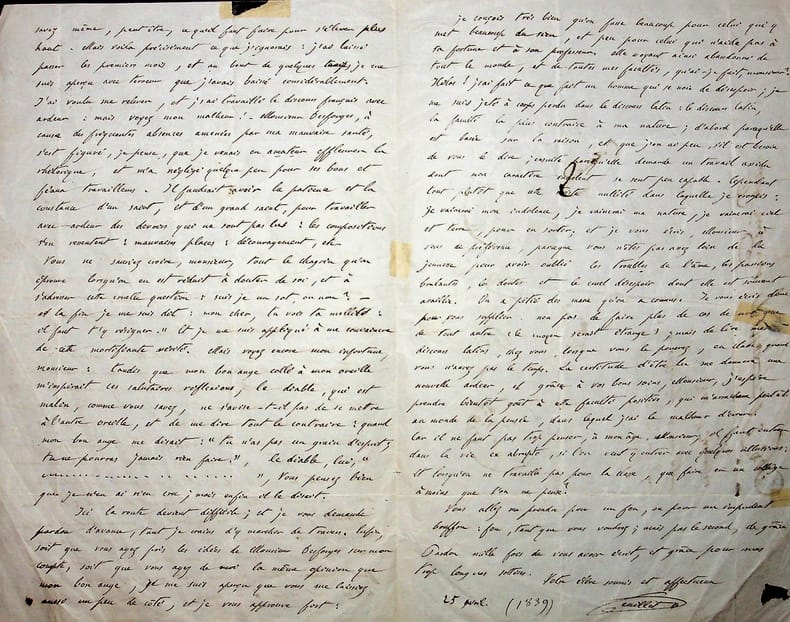 savez même, peut être, ce qu'il faut faire pour s'élever plus
haut. Mais voilà précisément ce que j'ignorais : j'ai laissé
passer les premiers mois, et au bout de quelques temps, je me
suis aperçu avec terreur que j'avais baissé considérablement.
J'ai voulu me relever, et j'ai travaillé le discours français avec
ardeur : mais voyez mon malheur ! - Monsieur Desforges, à
cause des fréquentes absences amenées par ma mauvaise santé,
s'est figuré, je pense, que je venais en amateur effleurer la
rhétorique, et m'a négligé quelque peu pour ses bons et
féaux travailleurs. Il faudrait avoir la patience et la
constance d'un saint, et d'un grand saint, pour travailler
avec ardeur des devoirs qui ne sont pas lus : les compositions
s'en ressentent : mauvaises places : découragement, etc
Vous ne sauriez croire, monsieur, tout le chagrin qu'on
éprouve lorsqu'on en est réduit à douter de soi, et à
s'adresser cette cruelle question : suis je un sot, ou non ? -
et la fin je me suis dit : mon cher, tu vois ta nullité :
il faut t'y résigner." Et je me suis appliqué à me convaincre
de cette mortifiante vérité. Mais voyez encore mon infortune,
monsieur : tandis que mon bon ange collé à mon oreille
m'inspirait ces salutaires réflexions, le diable, qui est
malin, comme vous savez, ne s'avise-t-il pas de se mettre
à l'autre oreille, et de me dire tout le contraire : quand
mon bon ange me disait : "tu n'as pas un grain d'esprit,
tu ne pourras jamais rien faire.", le diable, lui, "
................ ", Vous pensez bien
que je n'en ai rien cru ; mais enfin il le disait.
Ici la route devient difficile ; et je vous demande
pardon d'avance, tant je crains d'y marcher de travers. Enfin,
soit que vous ayez pris les idées de Monsieur Desforges sur mon
compte, soit que vous ayez de moi la même opinion que
mon bon ange, je me suis aperçu que vous me laissiez
aussi un peu de côté, et je vous approuve fort :
je conçois très bien qu'on fasse beaucoup pour celui qui y
met beaucoup du sien, et peu pour celui qui n'aide pas à
sa fortune et à son professeur. Me voyant ainsi abandonné de
tout le monde, et de toutes mes facultés, qu'ai-je fait, monsieur ?
Hélas ! j'ai fait ce que fait un homme qui se noie de désespoir ; je
me suis jeté à corps perdu dans le discours latin : le discours latin,
la faculté la plus contraire à ma nature ; d'abord parcequ'elle
est basée sur la raison, et que j'en ai peu, s'il est besoin
de vous le dire ; ensuite parcequ'elle demande un travail assidu
dont mon caractère indolent se sent peu capable. Cependant
tout plutôt que cette nullité dans laquelle je croupis :
je vaincrai mon indolence, je vaincrai ma nature, je vaincrai ciel
et terre, pour en sortir : et je vous écris, Monsieur, à
vous de préférence, parceque vous n'êtes pas assez loin de la
jeunesse pour avoir oublié les troubles de l'âme, les passions
brûlantes, les doutes et le cruel désespoir dont elle est souvent
assaillie. On a pitié des maux qu'on a connus. Je vous écris donc
pour vous supplier non pas de faire plus de cas de moi que
de tout autre (le moyen serait étrange !) ; mais de lire mes
discours latins, chez vous, lorsque vous le pourrez, en classe, quand
vous n'aurez pas le temps. La certitude d'être lu me donnera une
nouvelle ardeur, et grâce à vos bons soins, Monsieur, j'espère
prendre bientôt goût à cette faculté positive, qui m'arrachera peut être
au monde de la pensée, dans lequel j'ai le malheur d'errer.
Car il ne faut pas trop penser, à mon âge, Monsieur, il faut entrer
dans la vie en aveugle, si l'on veut y entrer avec quelques illusions :
et lorsqu'on ne travaille pas pour la classe, que faire en un collège
à moins que l'on ne pense ?
Vous allez me prendre pour un fou, ou pour un impudent
bouffon : fou, tant que vous voudrez ; mais pas le second, de grâce
Pardon mille fois de vous avoir écrit, et grâce pour mes
trop longues sottises.
Votre élève soumis et affectueux
25 avril. (1839)
Feuillet